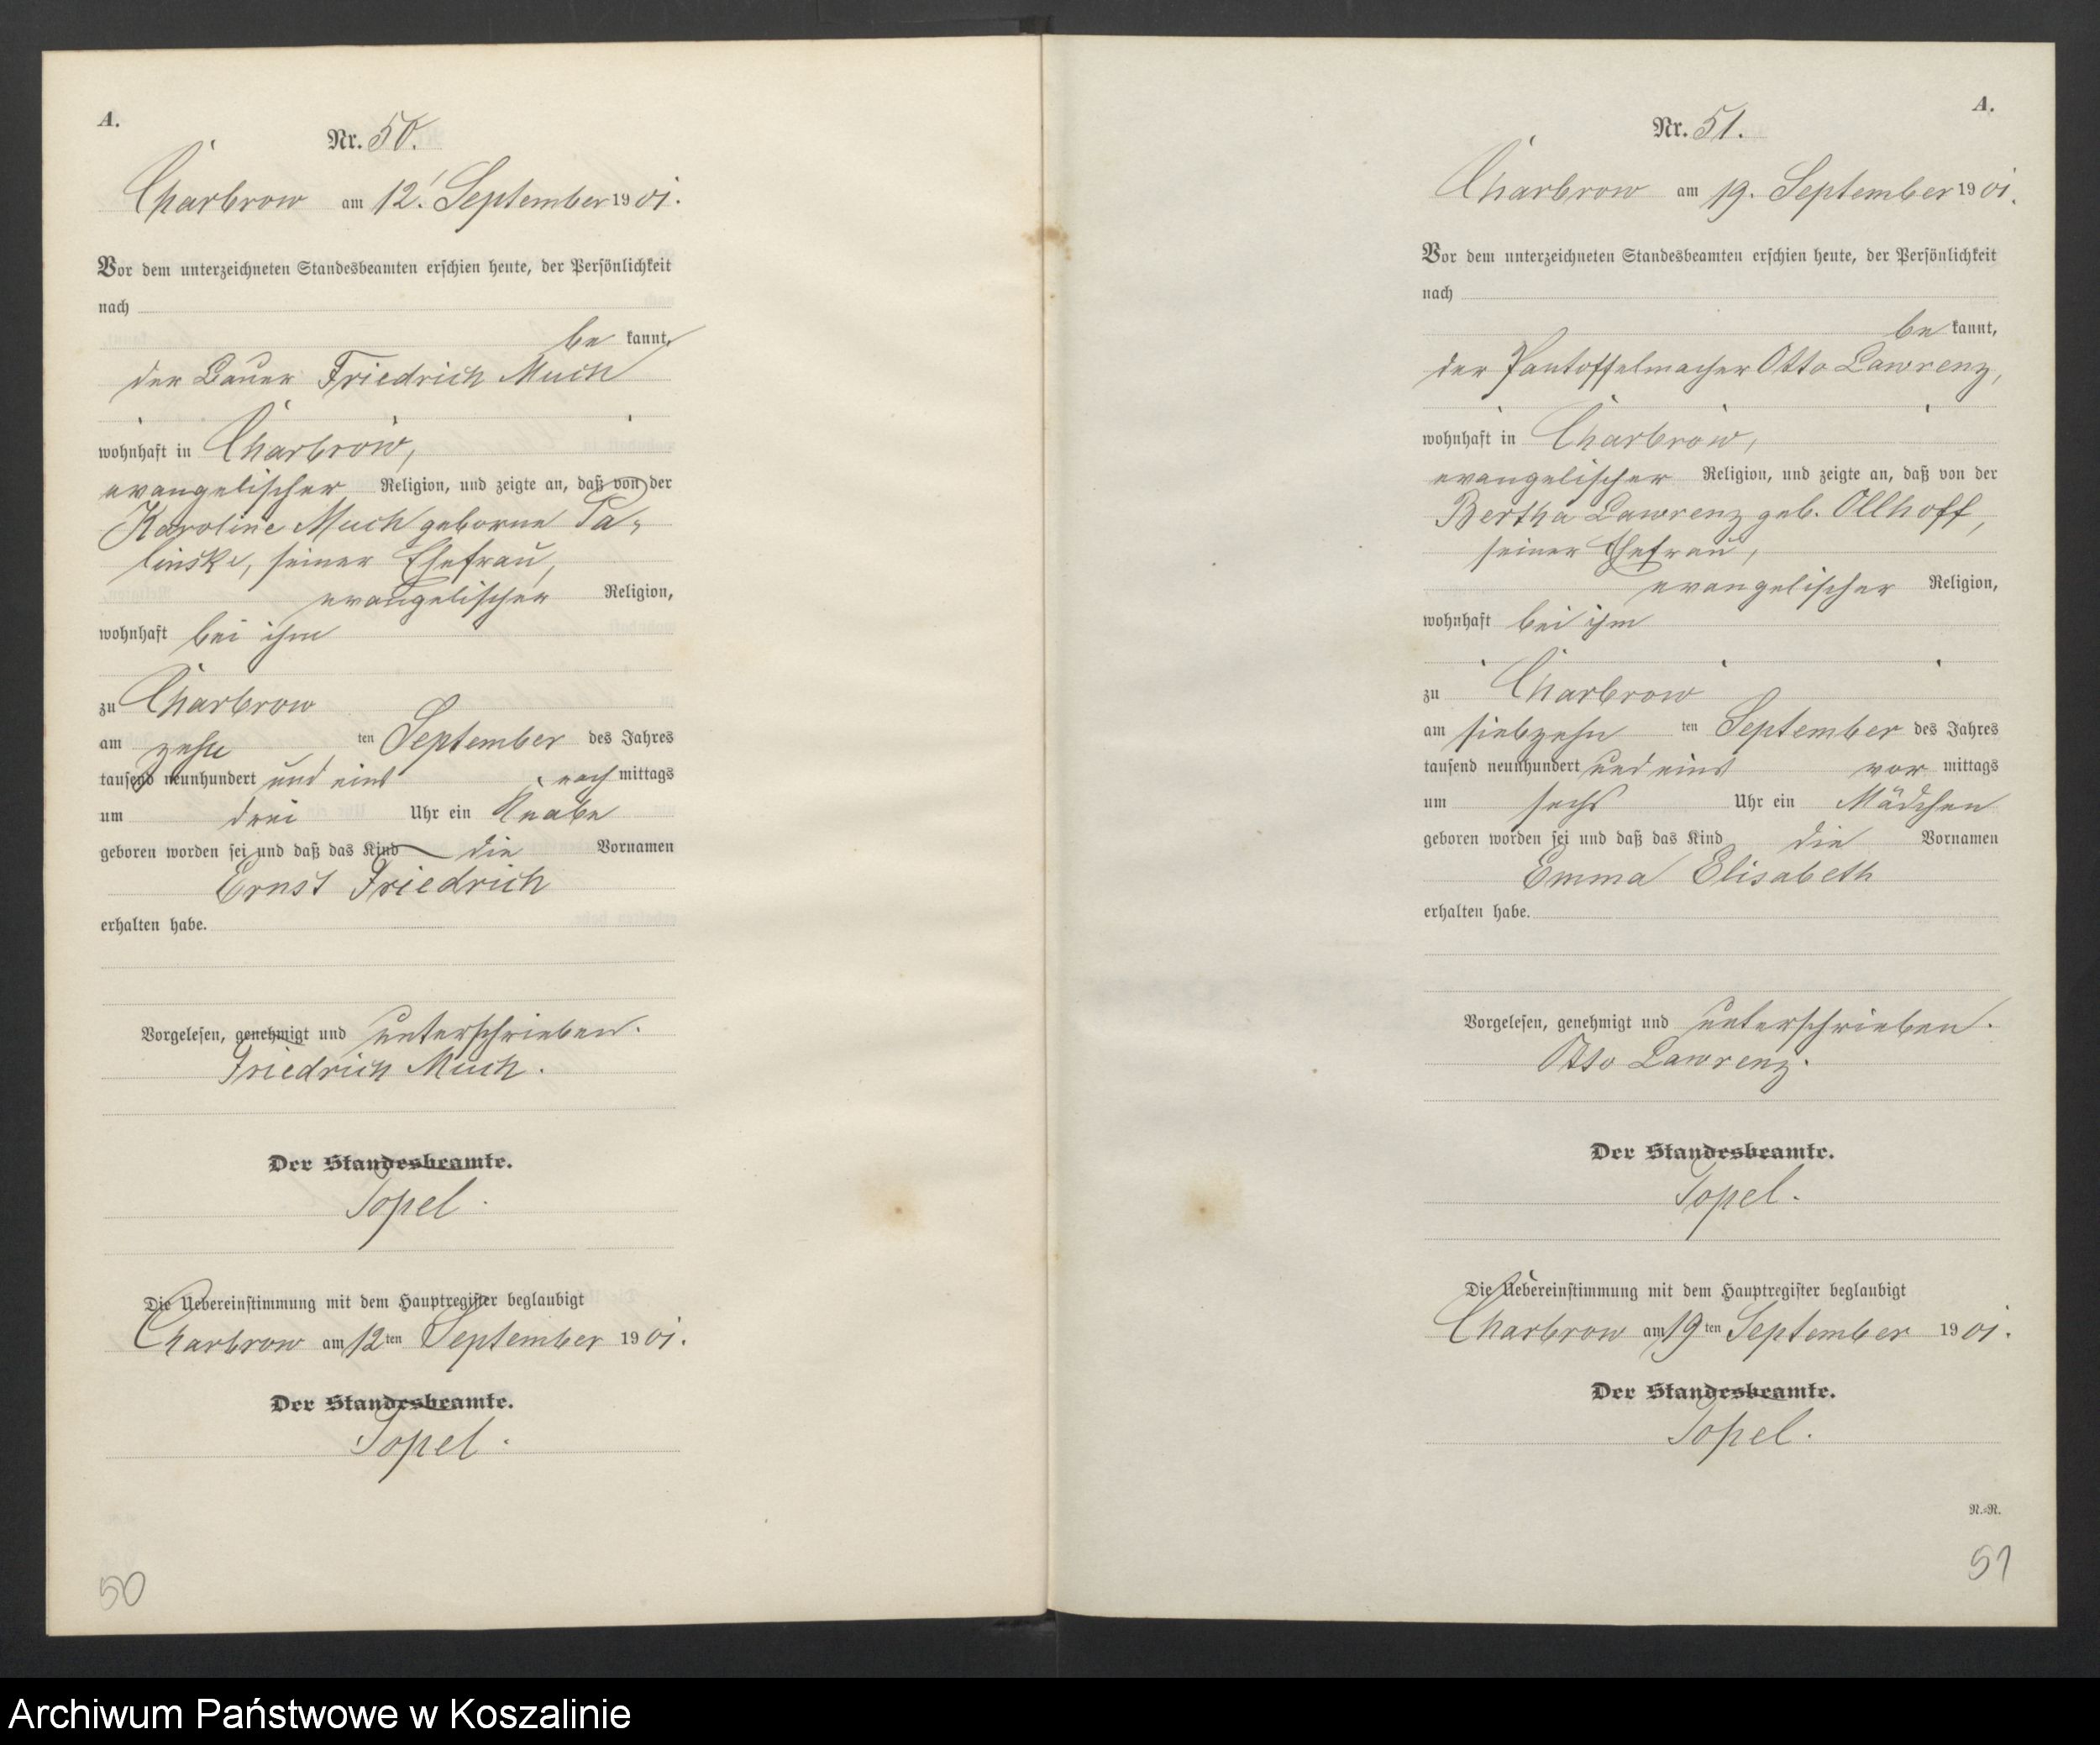 A.
Nr. 50.
Charbrow am 12. September 1901.
Vor dem unterzeichneten Standesbeamten erschien heute, der Persönlichkeit
nach
be kannt,
der Bauer Friedrich Much
wohnhaft in Charbrow,
evangelischer Religion, und zeigte an, daß von der
Karoline Much geborne Pa-
linske, seiner Ehefrau,
evangelischer Religion,
wohnhaft bei ihm
zu Charbrow
am zehn ten September des Jahres
tausend neunhundert und eins nach mittags
um drei Uhr ein Knabe
geboren worden sei und daß das Kind die Vornamen
Ernst Friedrich
erhalten habe.
Vorgelesen, genehmigt und unterschrieben.
Friedrich Much.
Der Standesbeamte.
Topel.
Die Uebereinstimmung mit dem Hauptregister beglaubigt
Charbrow am 12ten September 1901.
Der Standesbeamte.
Topel.
50
A.
Nr. 51.
Charbrow am 19. September 1901.
Vor dem unterzeichneten Standesbeamten erschien heute, der Persönlichkeit
nach
be kannt,
der Pantoffelmacher Otto Lawrenz,
wohnhaft in Charbrow,
evangelischer Religion, und zeigte an, daß von der
Bertha Lawrenz geb. Ollhoff,
seiner Ehefrau,
evangelischer Religion,
wohnhaft bei ihm
zu Charbrow
am siebzehn ten September des Jahres
tausend neunhundert und eins vor mittags
um sechs Uhr ein Mädchen
geboren worden sei und daß das Kind die Vornamen
Emma Elisabeth
erhalten habe.
Vorgelesen, genehmigt und unterschrieben.
Otto Lawrenz.
Der Standesbeamte.
Topel.
Die Uebereinstimmung mit dem Hauptregister beglaubigt
Charbrow am 19ten September 1901.
Der Standesbeamte.
Topel.
N.=R.
51
Archiwum Państwowe w Koszalinie